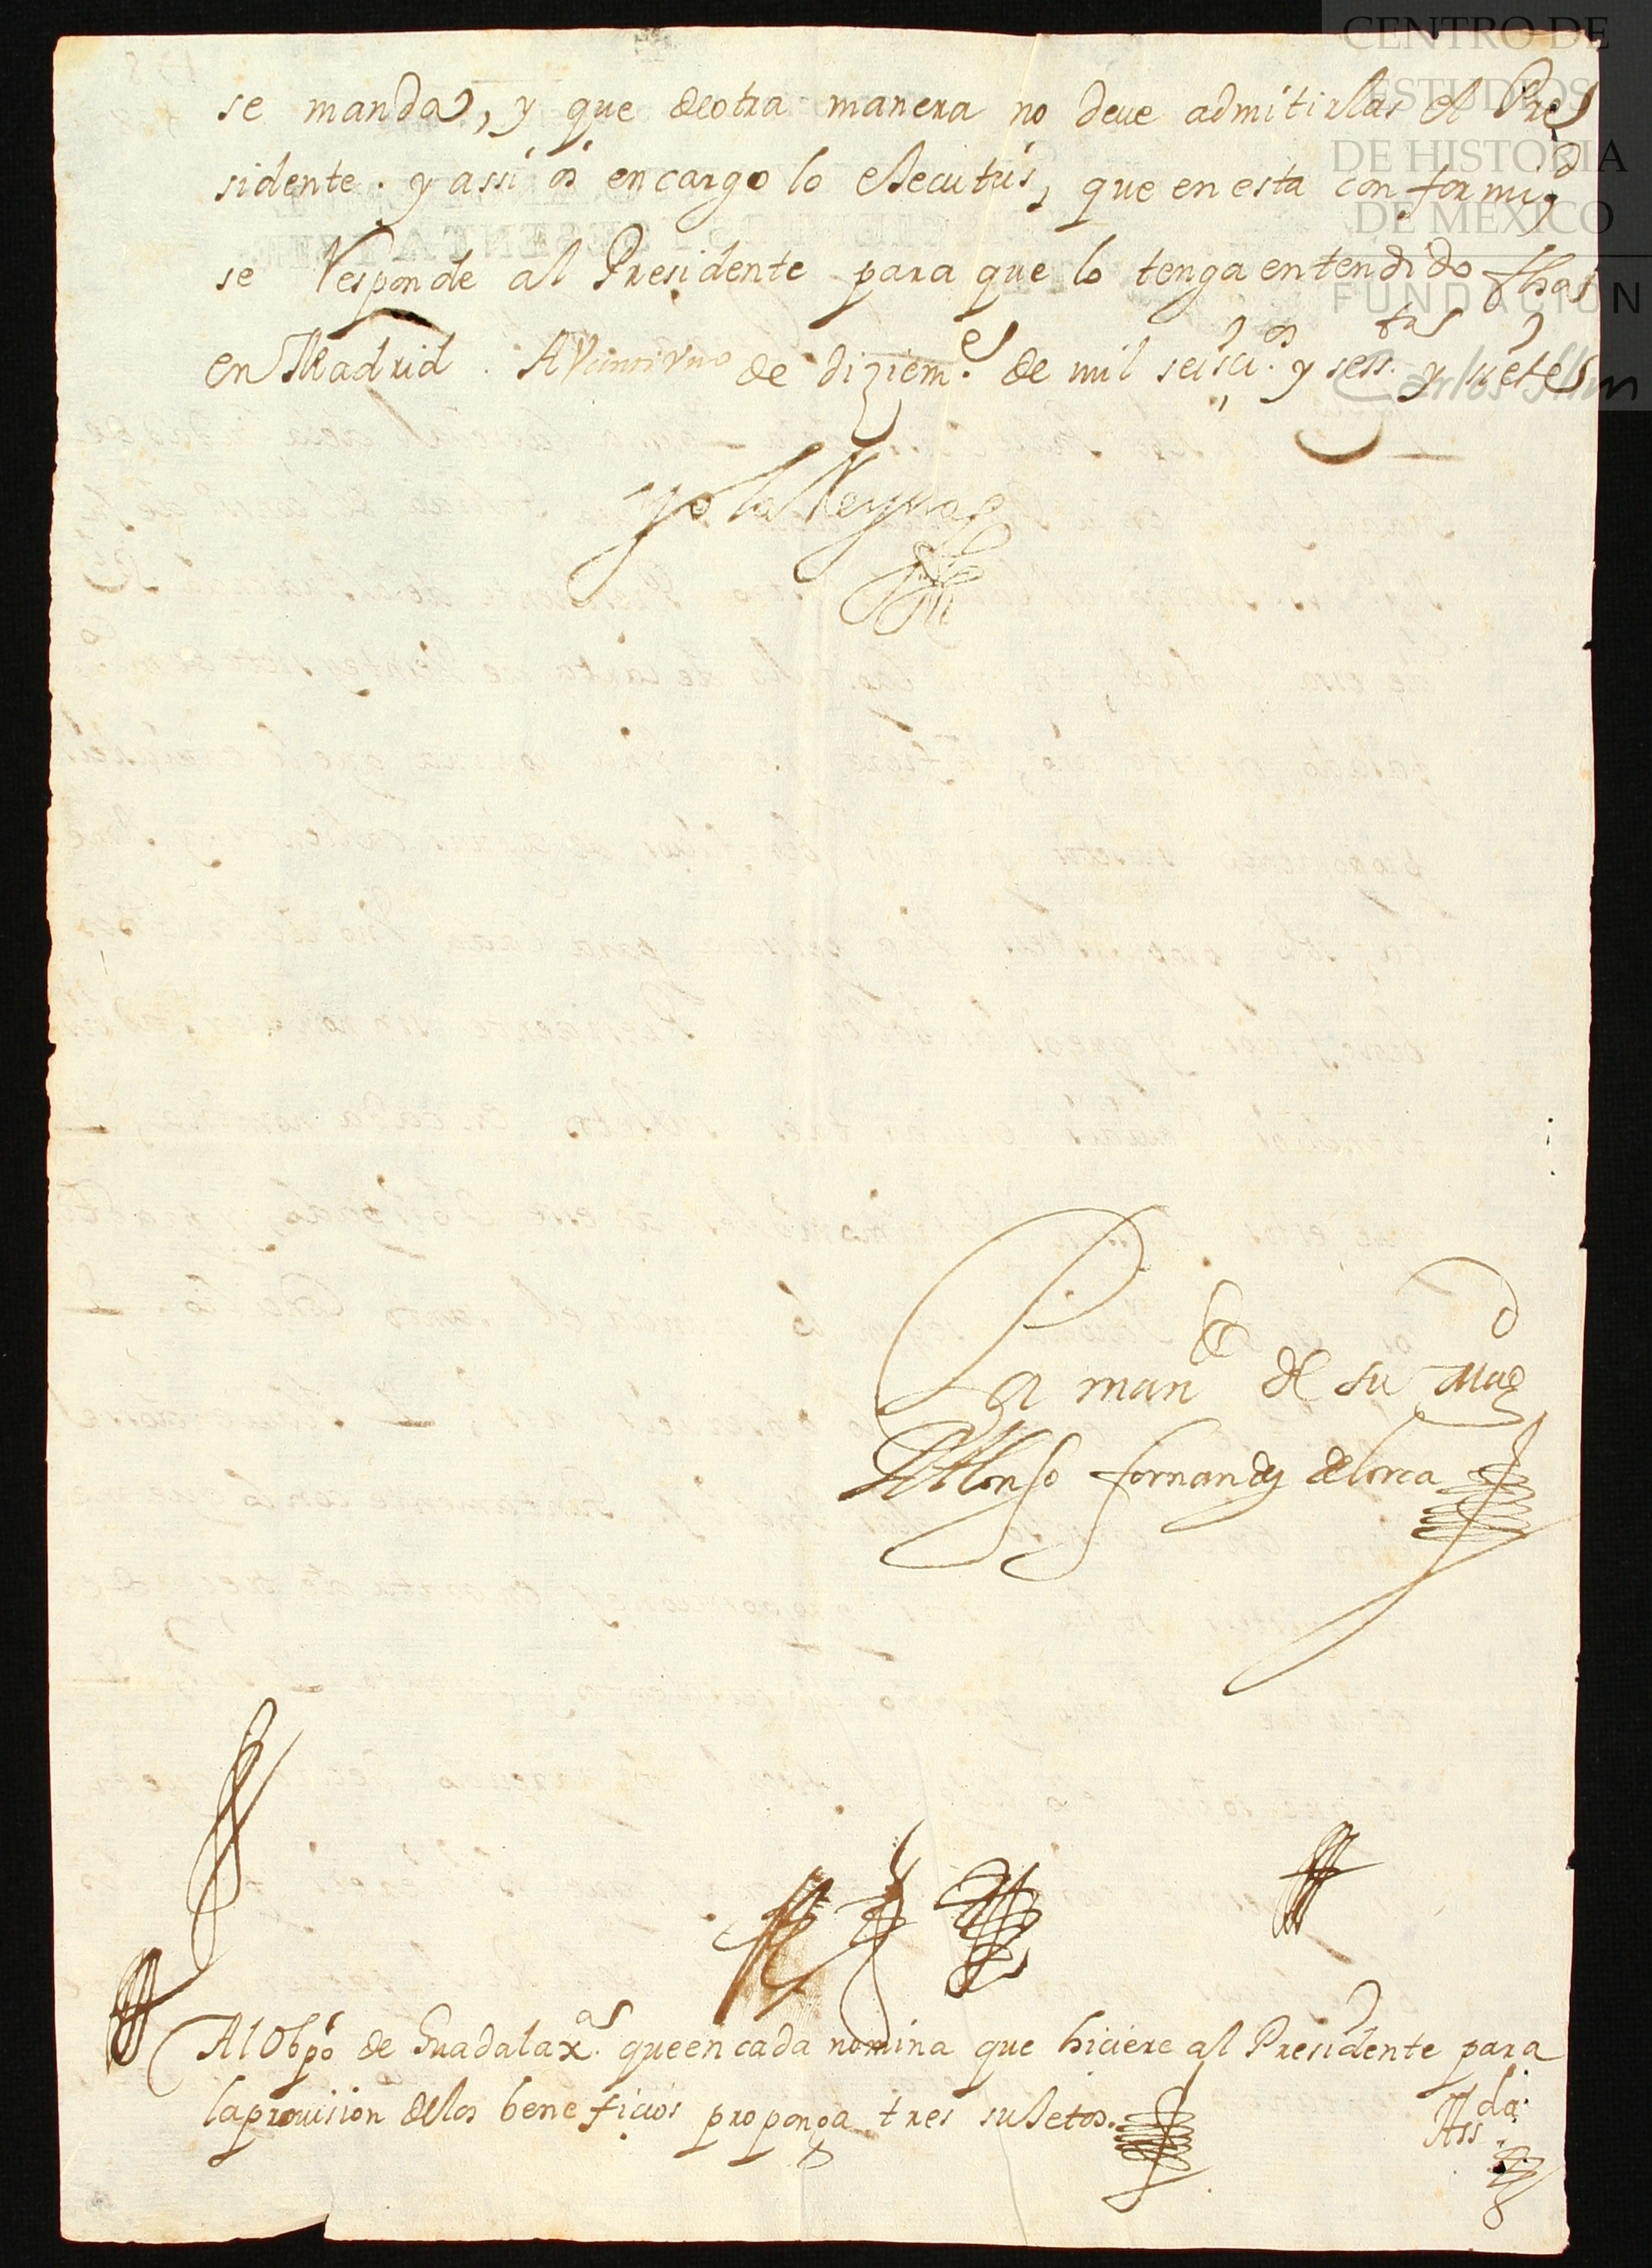 CENTRO DE
ESTUDIOS
DE HISTORIA
DE MEXICO
FUNDACIÓN
Carlos Slim
se manda, y que de otra manera no deve admitirlas el Pre
sidente. y assi os encargo lo executeis, que en esta conformd
se Responde al Presidente para que lo tenga entendido fha
en Madrid. A Veintiuno de diziem.e de mil seisci.os y sess.tas y siete
yo la Reyna
Por man.do de su Mag.d
D Alonso fernandez de lorca
Al Obpo de Guadalax.a que en cada nomina que hiciere al Presidente para
la provision de los beneficios proponga tres sujetos.